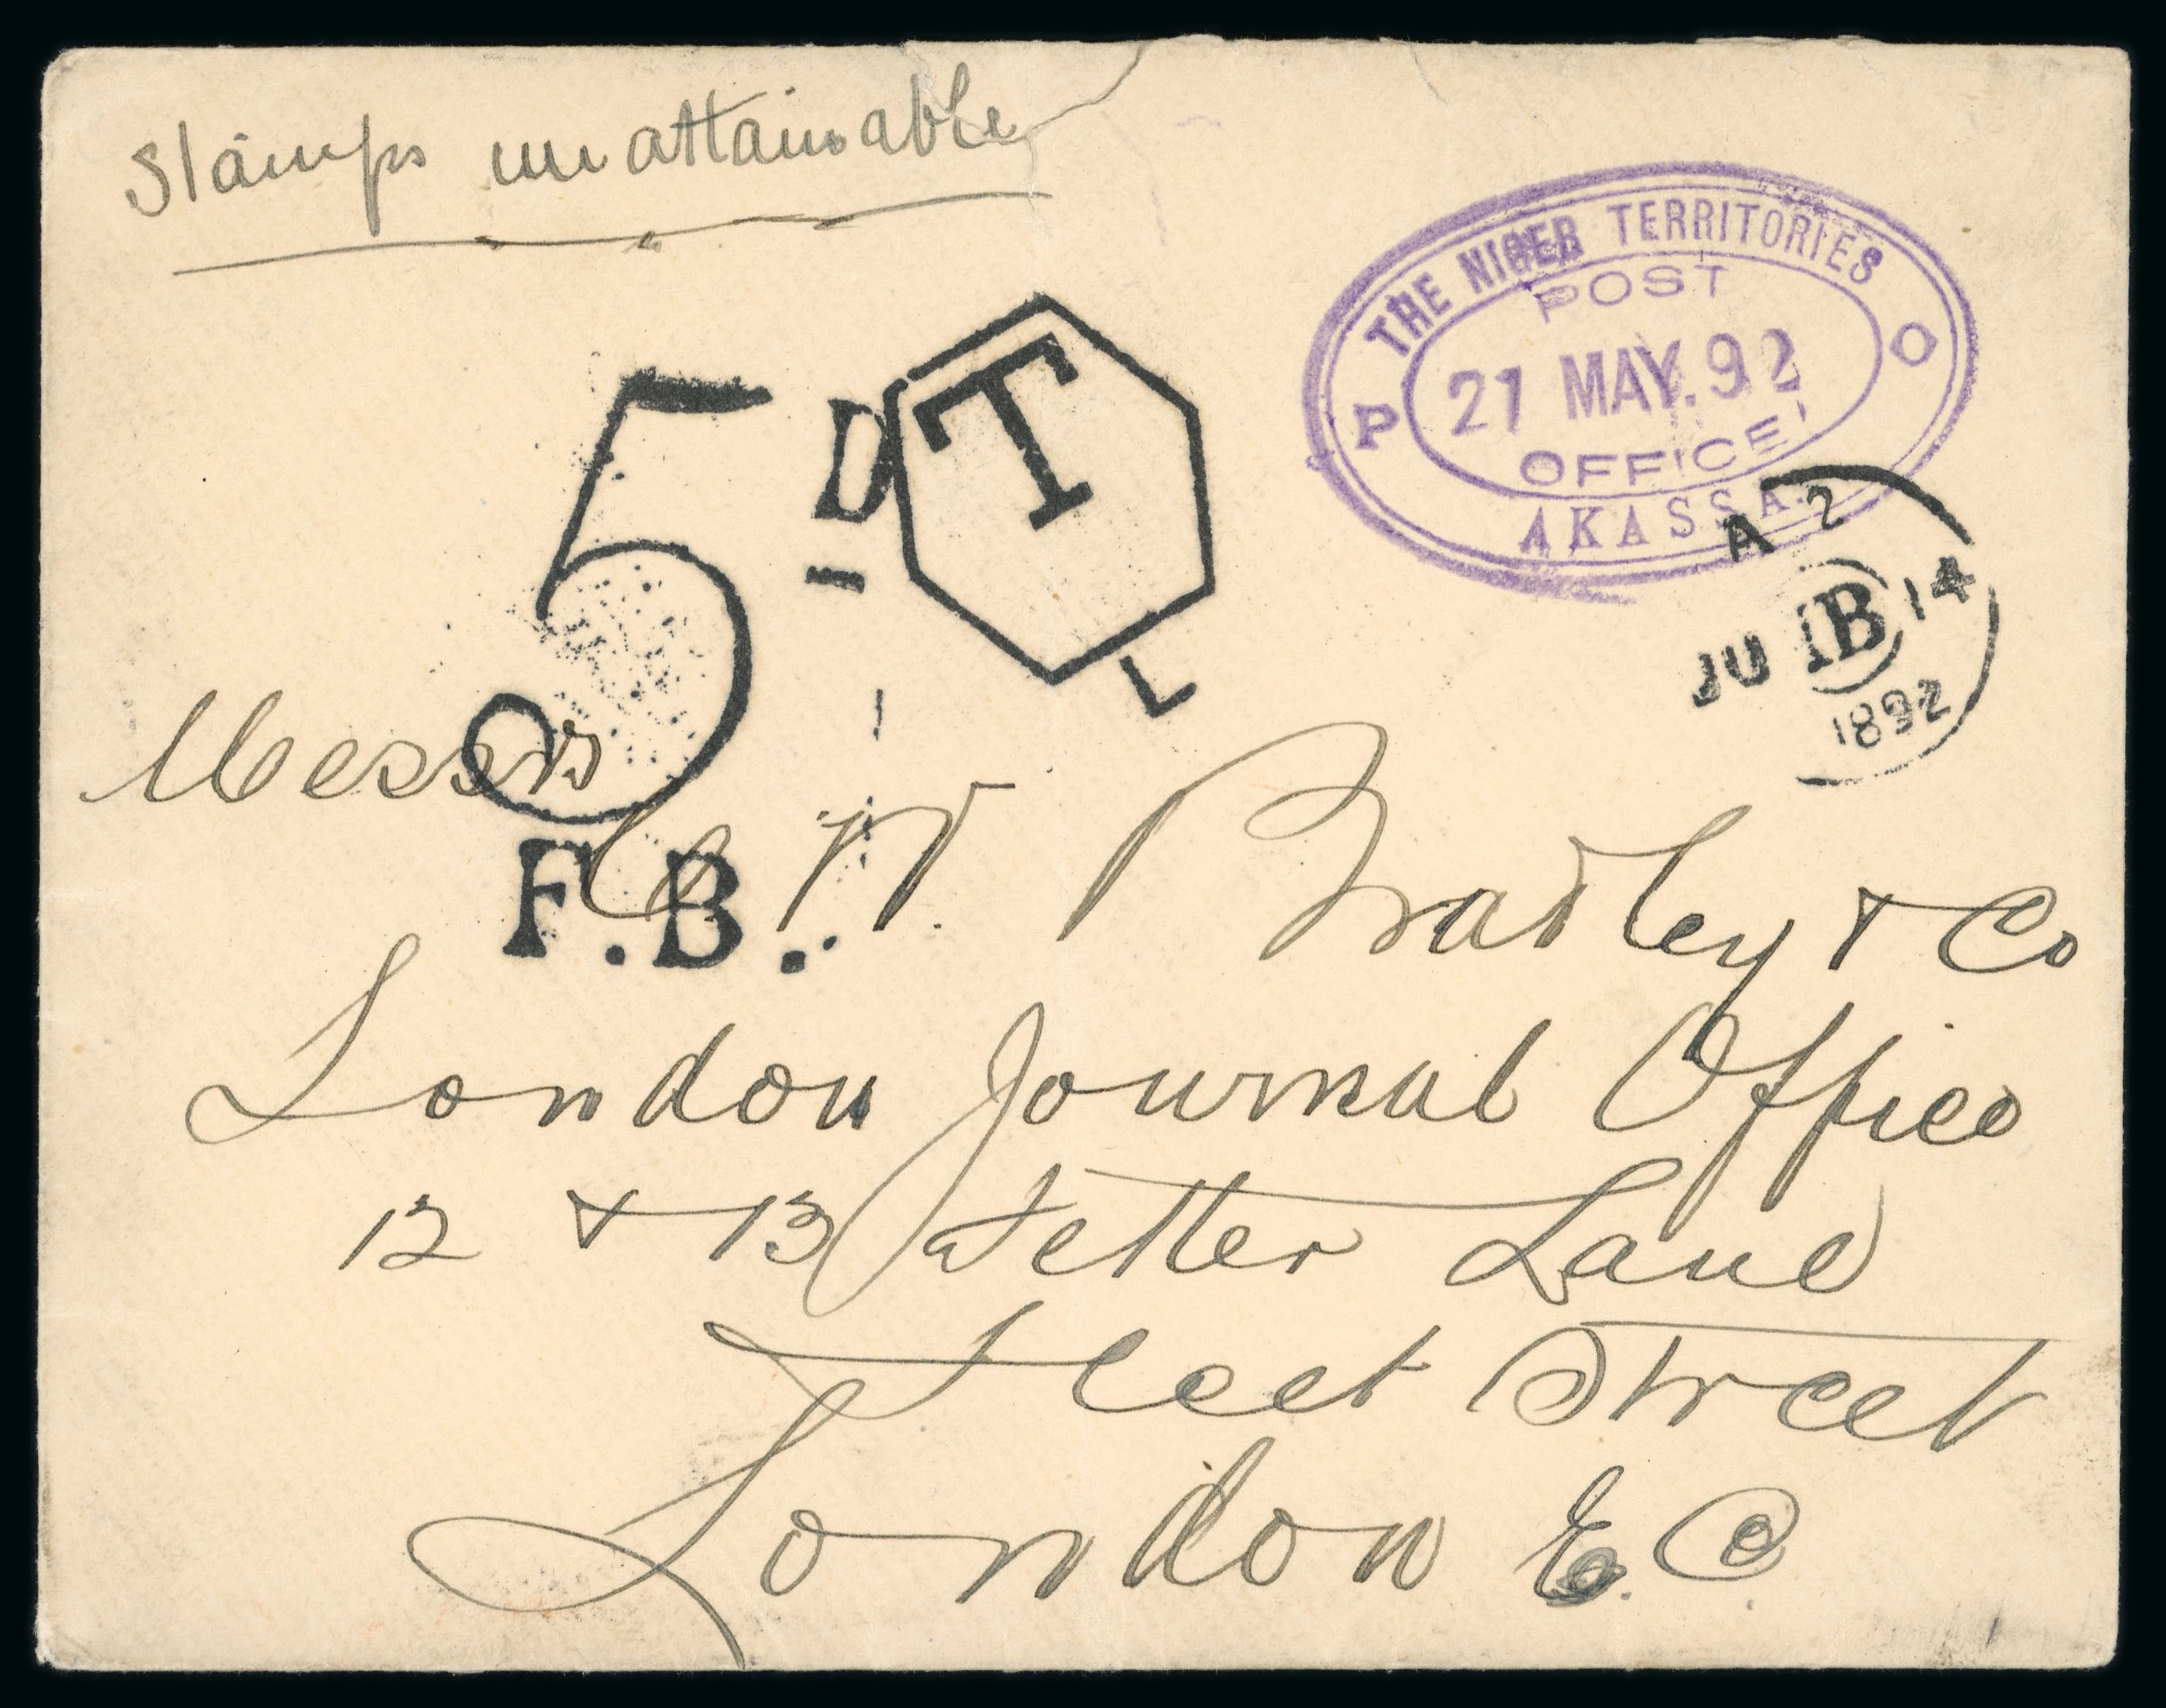 Stamps unattainable
THE NIGER TERRITORIES
POST
P 21 MAY.92 O
OFFICE
AKASSA.
5D
T
L
A 2
JU IB 14
1892
F.B.
Messrs
C W Bradley & Co
London Journal Office
12 & 13 Fetter Lane
Fleet Street
London E.C.